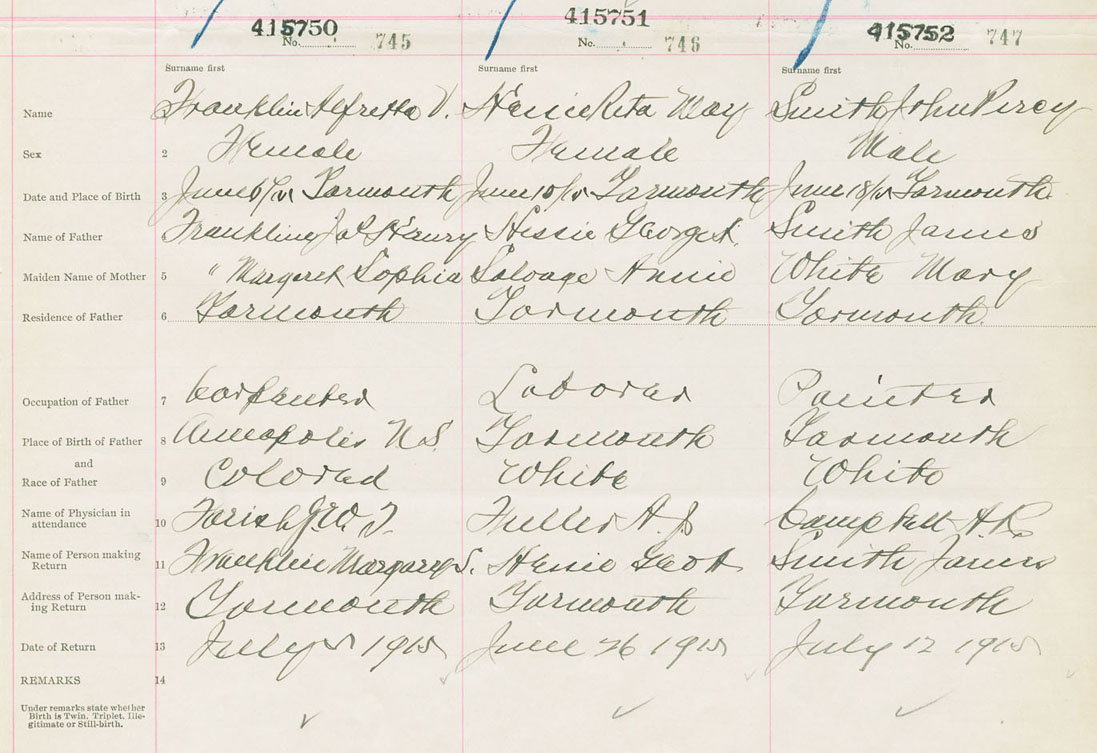 415750 415751 415752
No. 745 No. 746 No. 747
Surname first Surname first Surname first
Name Franklin Alfretta V. Hessie Rita May Smith John Percy
Sex 2 Female Female Male
Date and Place of Birth 3 June 6/15 Yarmouth June 10/15 Yarmouth June 18/15 Yarmouth
Name of Father Franklin Henry Hessie George A. Smith James
Maiden Name of Mother 5 " Margaret Sophia Salvage Annie White Mary
Residence of Father 6 Yarmouth Yarmouth Yarmouth.
Occupation of Father 7 Carpenter Laborer Painter
Place of Birth of Father 8 Annapolis N.S. Yarmouth Yarmouth
and
Race of Father 9 Colored White White
Name of Physician in
attendance 10 Farish Fuller A J Campbell A.R.
Name of Person making
Return 11 Franklin Margaret S. Hessie Geo A Smith James
Address of Person mak-
ing Return 12 Yarmouth Yarmouth Yarmouth
Date of Return 13 July 5 1915 June 26 1915 July 12 1915
REMARKS 14
Under remarks state whether
Birth is Twin, Triplet, Ille-
gitimate or Still-birth.